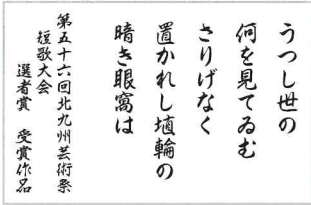 うつし世の
何を見てゐむ
さりげなく
置かれし埴輪の
暗き眼窩は
第五十六回北九州芸術祭
短歌大会
選者賞 受賞作品